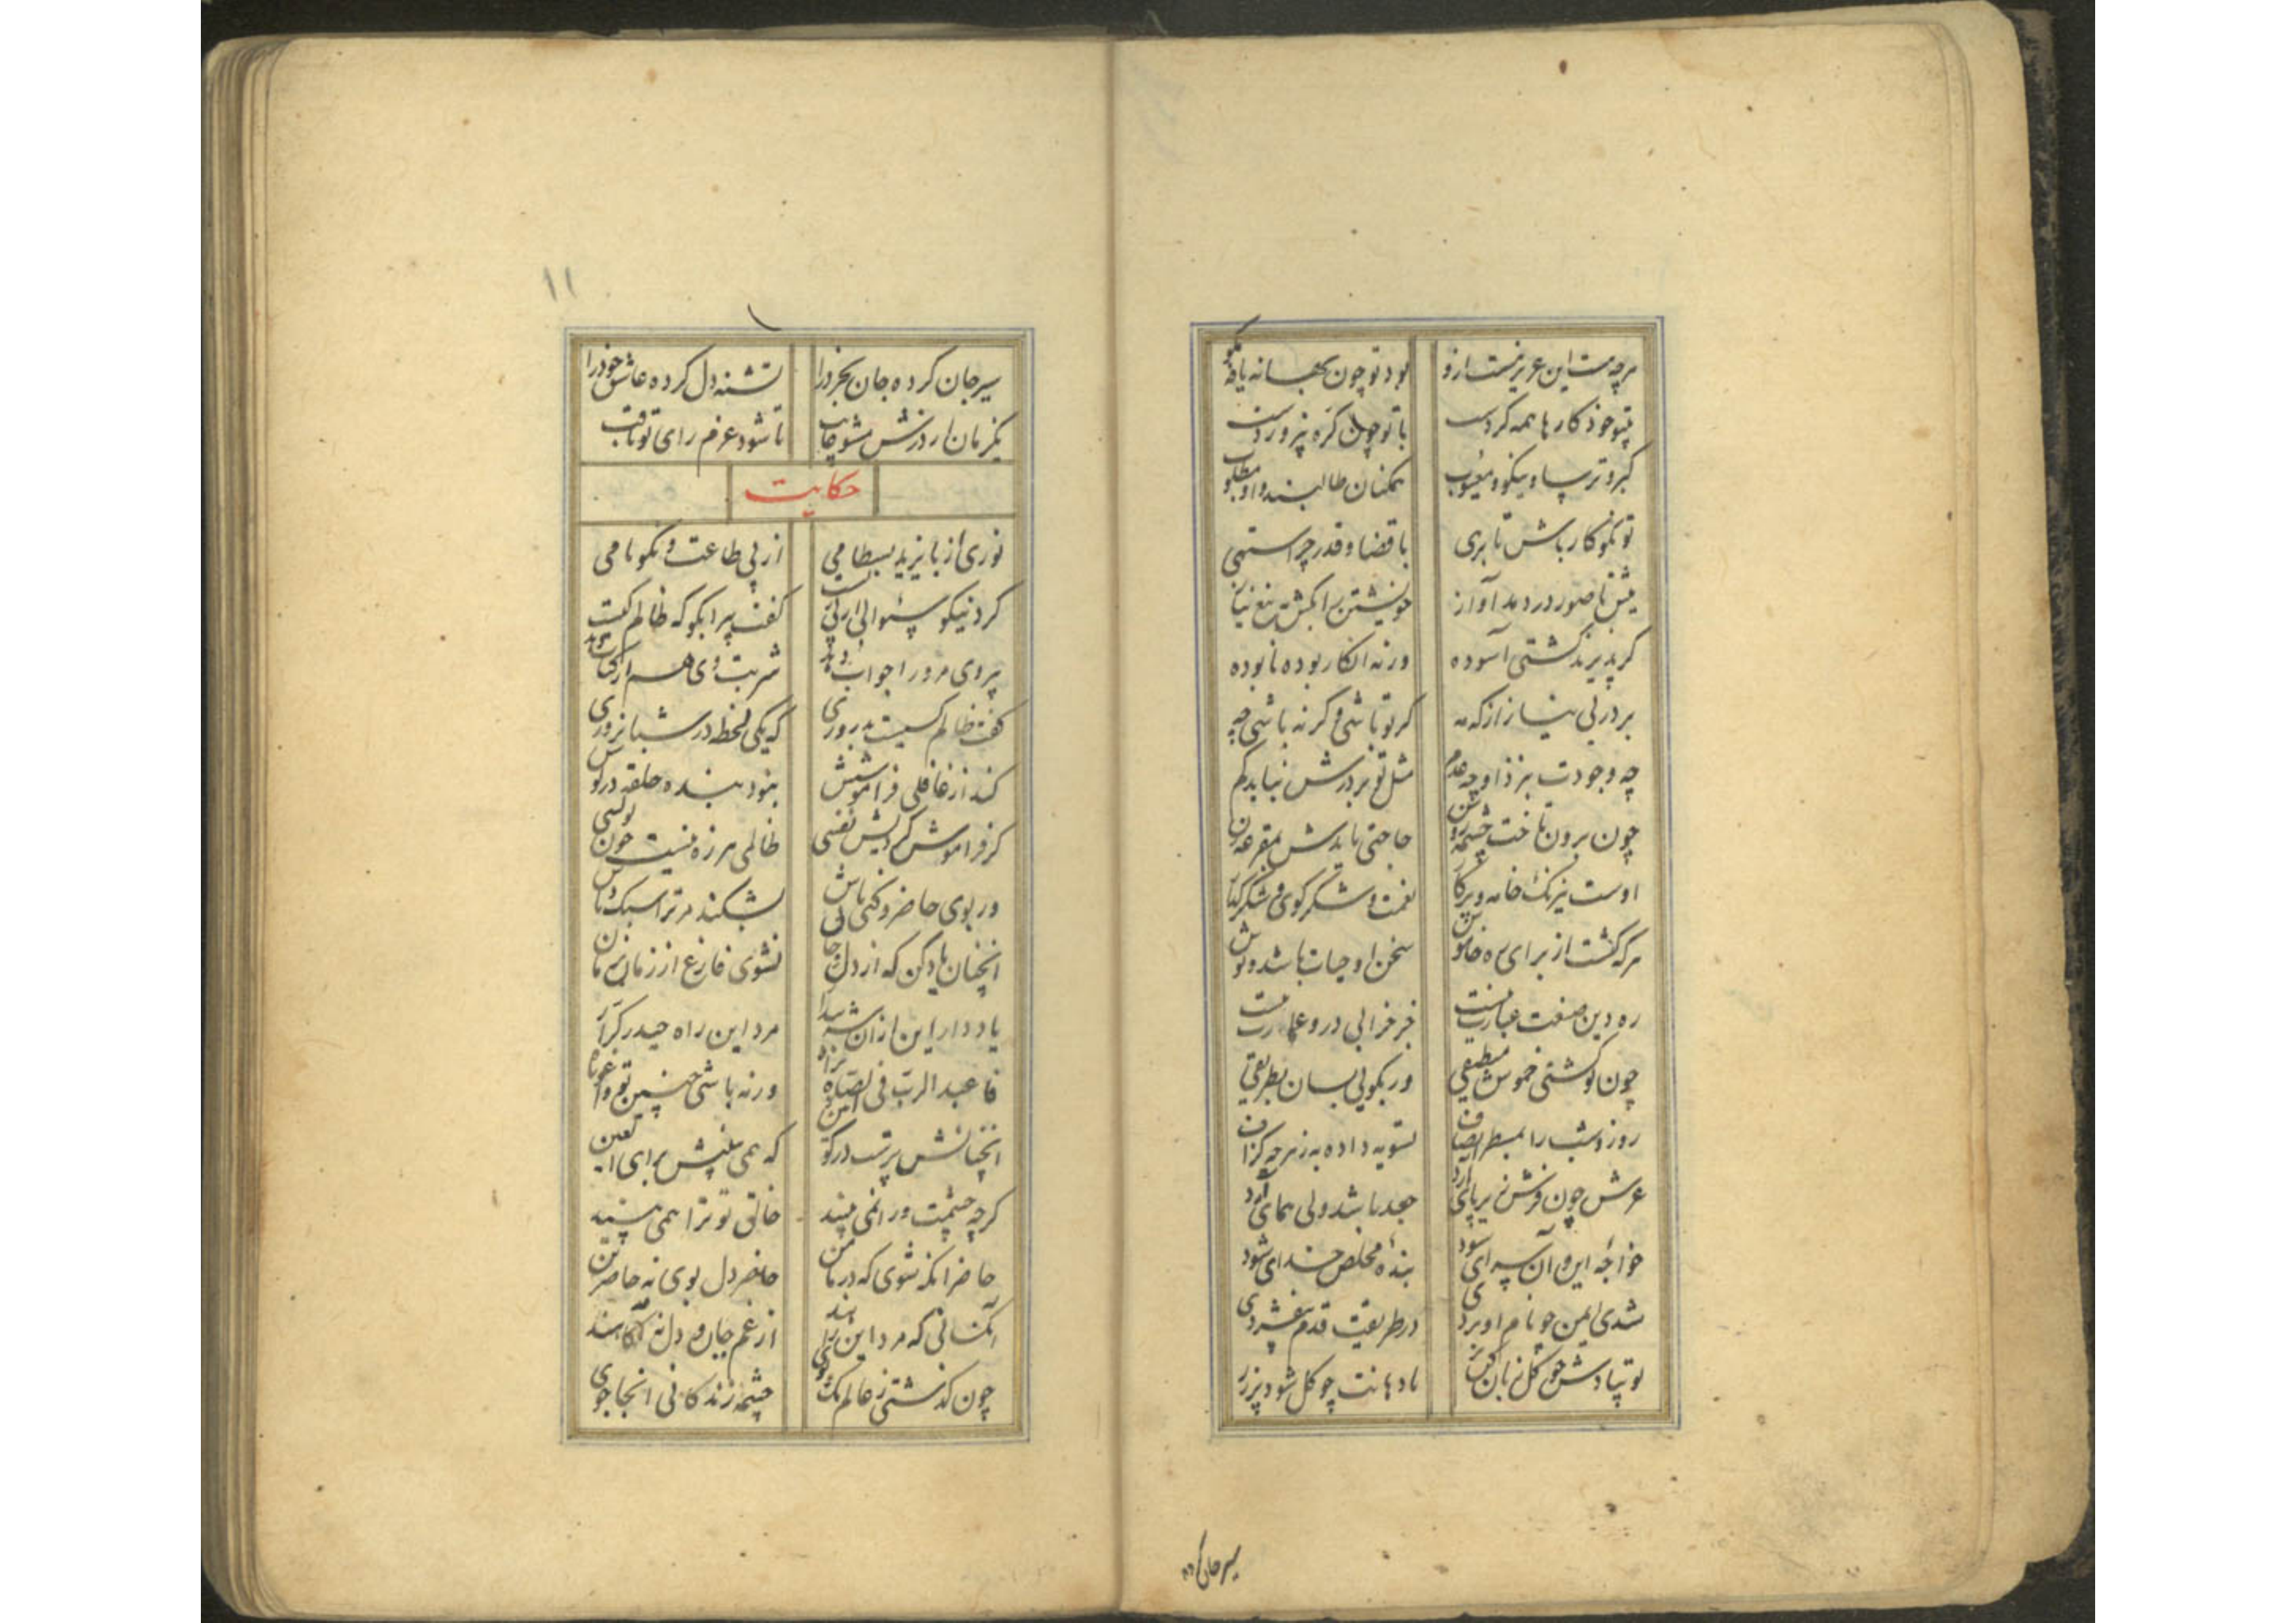 هرچه هست این عزیز نیست ازو بود تو چون بهانه یافه مگو
بتو خود کارها همه کردست با تو چون کره پروردست
کبر و ترسا و نیکو و معیوب همکنان طالبند و او مطلوب
تو نکوکار باش تا برهی با قضا و قدر چرا ستهی
پیش تا صور در دهد آواز خویشتن را بکش بتیغ نیاز
کر پذیرند کشتی آسوده ورنه انکار بوده نابوده
بر در بی نیاز از که مه کر تو باشی و کر نه باشی چه
چه وجودت بنزد او چه عدم مثل تو بر درش نیاید کم
چون برون تاخت چشمه روشن حاجتی نایدش بمقرعه زن
اوست نیرنک خامه و پرکار نعمت و شکر کوی و شکر کزار
هرکه کشت از برای ره خاموش سخن او حیات باشد و نوش
ره دین صنعت عبارت نیست جز خرابی درو عمارت نیست
چون تو کشتی خموش منطیقی ور بکویی بسان بطریقی
روز و شب را بمسطر انصاف تسویه داده به ز هرچه کزاف
عرش چون فرش زیر پای آرد جغد باشد ولی همای آرد
خواجه این و آن سرای شود بنده مخلص خدای شود
شدی ایمن چو نام او بردی در طریقت قدم بیفشردی
تو بیادش چو کل زبان کن تر تا دهانت چو کل شود پر زر
سیر جان کرده
۱۱
سیر جان کرده جان بخرد را تشنه دل کرده عاشق خود را
یکزمان از درش مشو غایب تا شود عزم و رای تو ثاقب
حکایت
ثوری از بایزید بسطامی از پی طاعت و نکونامی
کرد نیکو سئوالی و بکریست کفت پیرا بکو که ظالم کیست
پیر وی مرورا جواب بداد شربت وی هم از کتاب بداد
کفت ظالم کسیست بدروزی که یکی لحظه در شبانروزی
کند از غافلی فراموشش نبود بنده حلقه در کوشش
کر فراموش کردیش نفسی ظالمی هرزه نیست چون تو کسی
ور بوی حاضر و کنی نامش بشکند مر ترا سبک دامش
آنچنان یاد کن که از دل و جان نشوی فارغ از زمان بزمان
یاد دار این از آن شه بیدار مرد این راه حیدر کرار
فاعبد الرب فی الصلاة تراه ورنه باشی چنین تو واغوثاه
آنچنانش پرست در کونین که همی بینیش برای العین
کرچه چشمت ورا نمی بیند خالق تو ترا همی بیند
حاضر آنکه شوی که در مامن حاضر دل بوی نه حاضر تن
آنکسانی که مرد این راهند از غم جان و دل نه آکاهند
چون کذشتی ز عالم تک و پوی چشمه زندکانی آنجا جوی